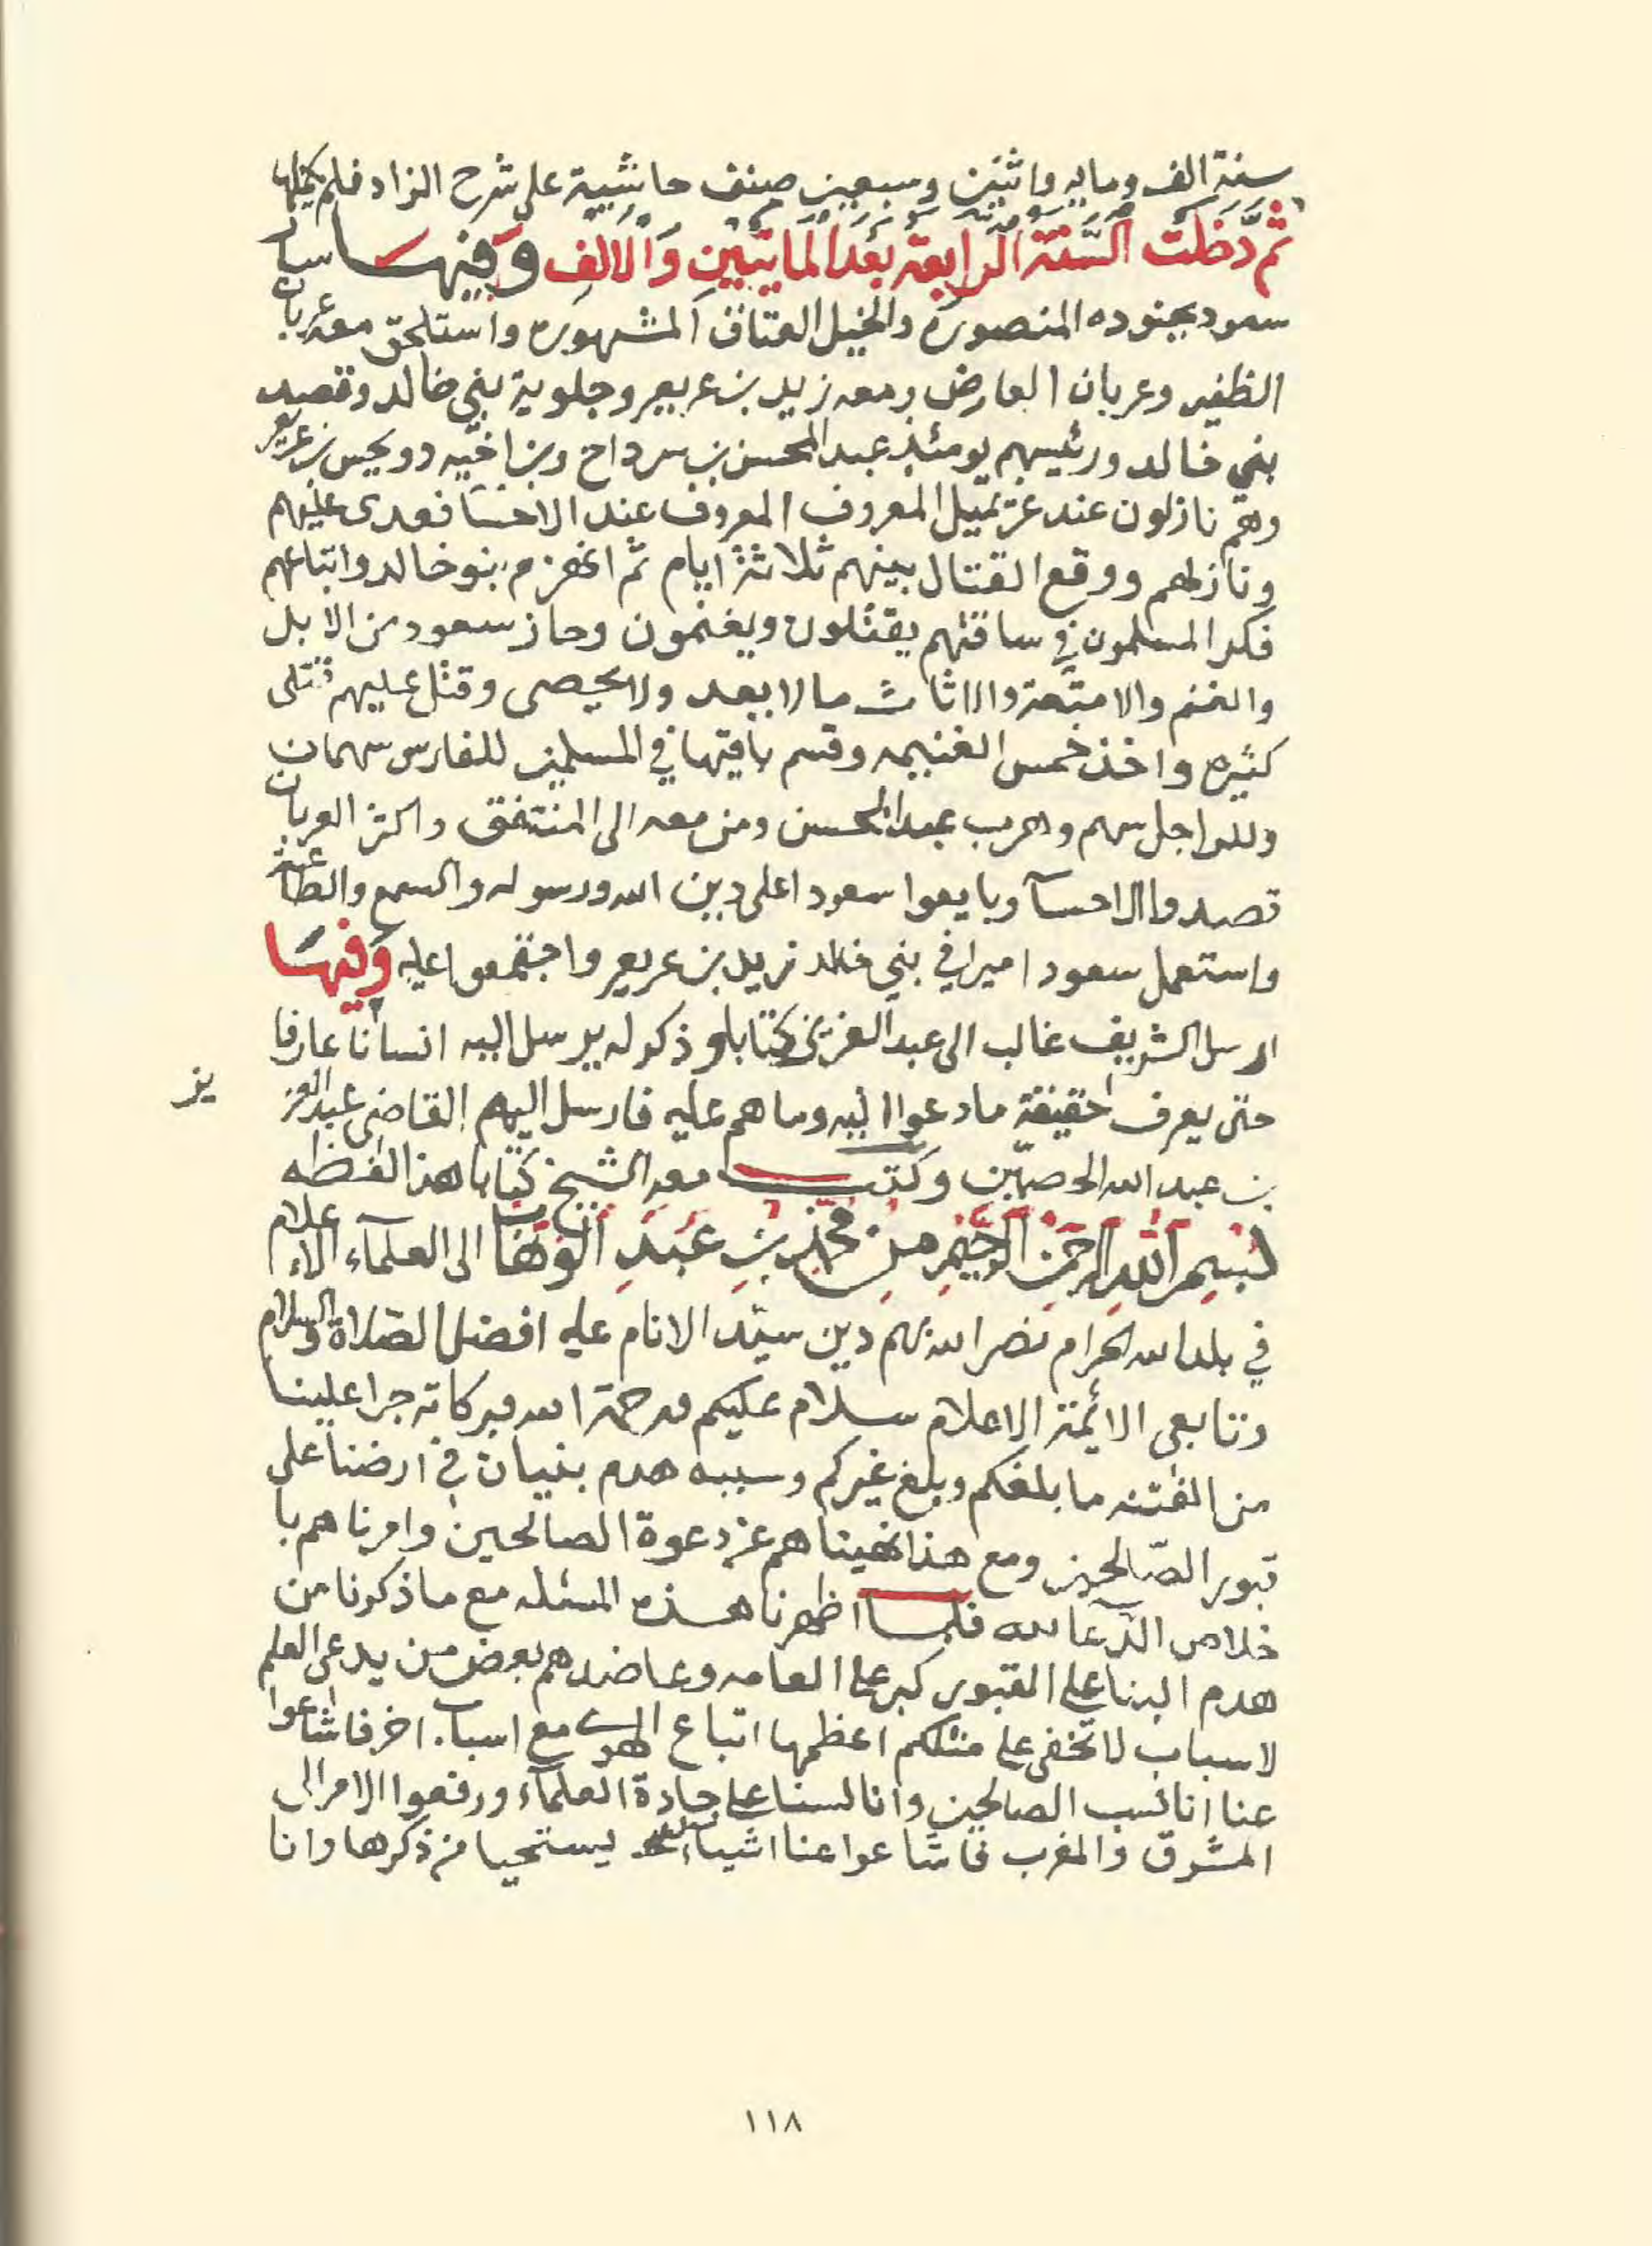 سنة الف ومايه واثنين وسبعين صنف حاشية على شرح الزاد فلم يكملها
ثُمَّ دَخَلَت السَّنَة الرَّابِعَة بَعْدَ المايَتَيْن وَالالف وَفيهَا سار
سعود بجنوده المنصوره والخيل العتاق المشهوره واستلحق معه عربان
الظفير وعربان العارض ومعه زيد بن عريعر وجلوية بني خالد وقصد
بني خالد ورئيسهم يومئذ عبد المحسن بن سرداح وبن اخيه دويحس بن عريعر
وهم نازلون عند غريميل المعروف المعروف عند الاحسا فعدى عليهم
ونازلهم ووقع القتال بينهم ثلاثة ايام ثم انهزم بنو خالد واتباعهم
فكر المسلمون في ساقتهم يقتلون ويغنمون وحاز سعود من الابل
والغنم والامتعة والاثاث مالا يعد ولا يحصى وقتل عليهم قتلى
كثيره واخذ خمس الغنيمه وقسم باقيها في المسلمين للفارس سهمان
وللراجل سهم وهرب عبد المحسن ومن معه الى المنتفق واكثر العربان
قصدوا الاحسآ وبايعوا سعودا على دين الله ورسوله والسمع والطاعة
واستعمل سعود اميرا في بني خالد زيد بن عريعر واجتمعوا عليه وَفيهَا
ارسل الشريف غالب الى عبد العزيز كتابا وذكر له يرسل اليه انسانا عارفا
حتى يعرف حقيقة ما دعوا اليه وما هم عليه فارسل اليهم القاضى عبد العز
يز
بن عبد الله الحصيّن وكتب معه الشيخ كتابا هذا لفظه
بسم الله الرحمن الرحيم من محمد بن عبد الوهاب الى العلمآء الاعلام
في بلد الله الحرام نصر الله بهم دين سيّد الانام عليه افضل الصلاة والسلام
وتابعى الائمة الاعلام سلام عليكم ورحمة الله وبركاته جرا علينا
من الفتنه ما بلغكم وبلغ غيركم وسببه هدم بنيان في ارضنا على
قبور الصّالحين ومع هذا نهيناهم عن دعوة الصالحين وامرناهم با
خلاص الدّعآ لله فلما اظهرنا هذه المسئله مع ما ذكرنا من
هدم البنا على القبور كبر على العامه وعاضدهم بعض من يدعى العلم
لاسباب لا تخفى على مثلكم اعظمها اتباع الهوى مع اسباب اخر فاشاعوا
عنا انا نسب الصالحين وانا لسنا على جادة العلمآء ورفعوا الامر الى
المشرق والمغرب فاشاعوا عنا اشياء يستحيا من ذكرها وانا
١١٨